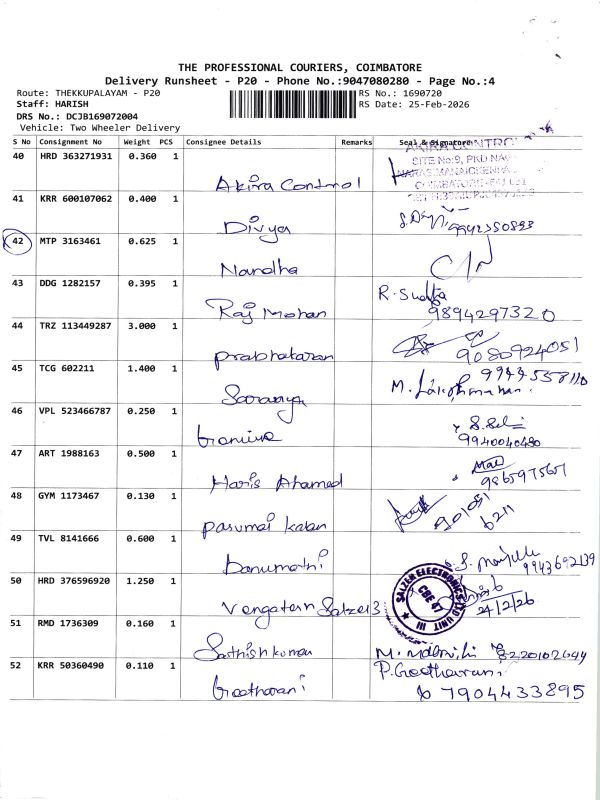 THE PROFESSIONAL COURIERS, COIMBATORE
Delivery Runsheet - P20 - Phone No.:9047080280 - Page No.:4
Route: THEKKUPALAYAM - P20
RS No.: 1690720
Staff: HARISH
RS Date: 25-Feb-2026
DRS No.: DCJB169072004
Vehicle: Two Wheeler Delivery
S No Consignment No Weight PCS Consignee Details Remarks Seal & Signature
40 HRD 363271931 0.360 1 Akira Control
AKIRA CONTROL
SITE No:9, PKD NA
41 KRR 600107062 0.400 1 Divya
42 MTP 3163461 0.625 1 Nandha
43 DDG 1282157 0.395 1 Raj Mohan R. Sudha
9894297320
44 TRZ 113449287 3.000 1 Prabhakaran 9080924051
45 TCG 602211 1.400 1 Saranya M. Lakshmanan
46 VPL 523466787 0.250 1 9940040480
47 ART 1988163 0.500 1 Haris Ahamed
48 GYM 1173467 0.130 1 Pasumai kalan
49 TVL 8141666 0.600 1 banumathi 9943692139
50 HRD 376596920 1.250 1 Vengatesh Salzer 3
SALZER ELECTRONICS LTD UNIT III
CBE 47
24/2/26
51 RMD 1736309 0.160 1 Sathishkumar 8220102644
52 KRR 50360490 0.110 1 Geetharani P. Geetharani
7904433895